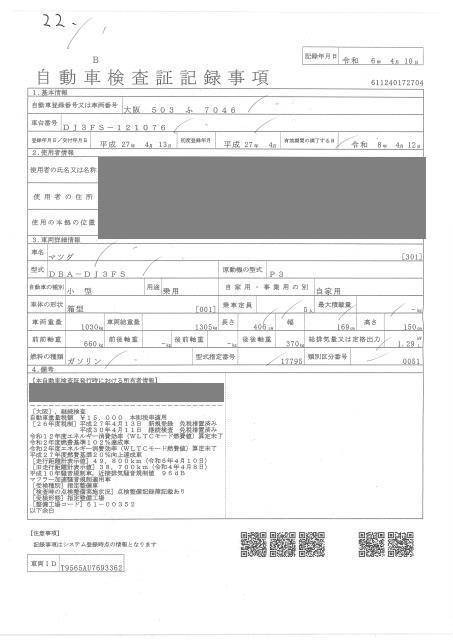 22.
B
記録年月日 令和 6年 4月 10日
自動車検査証記録事項
611240172704
1.基本情報
自動車登録番号又は車両番号 大阪 503 ふ 7046
車台番号 DJ3FS-121076
登録年月日/交付年月日 平成 27年 4月 13日 初度登録年月 平成 27年 4月 有効期間の満了する日 令和 8年 4月 12日
2.使用者情報
使用者の氏名又は名称
使用者の住所
使用の本拠の位置
3.車両詳細情報
車名 マツダ [301]
型式 DBA-DJ3FS 原動機の型式 P3
自動車の種別 小型 用途 乗用 自家用・事業用の別 自家用
車体の形状 箱型 [001] 乗車定員 5人 最大積載量 -kg
車両重量 1030kg 車両総重量 1305kg 長さ 406cm 幅 169cm 高さ 150cm
前前軸重 660kg 前後軸重 -kg 後前軸重 -kg 後後軸重 370kg 総排気量又は定格出力 1.29L
燃料の種類 ガソリン 型式指定番号 17795 類別区分番号 0051
4.備考
【本自動車検査証発行時における所有者情報】
[大阪], 継続検査
自動車重量税額 ¥15,000 本則税率適用
[26年度税制] 平成27年4月13日 新規登録 免税措置済み
平成30年4月11日 継続検査 免税措置済み
令和12年度エネルギー消費効率(WLTCモード燃費値)算定未了
令和2年度燃費基準102%達成車
令和2年度エネルギー消費効率(WLTCモード燃費値)算定未了
平成27年度燃費基準20%向上達成車
[走行距離計表示値] 49,800km (令和6年4月10日)
[旧走行距離計表示値] 38,700km (令和4年4月8日)
平成10年騒音規制車, 近接排気騒音規制値 96dB
マフラー加速騒音規制適用車
[受検種別] 指定整備車
[検査時の点検整備実施状況] 点検整備記録簿記載あり
[受検形態] 指定整備工場
[整備工場コード] 61-00352
以下余白
【注意事項】
記録事項はシステム登録時点の情報となります
車両ID T9565AU7693362